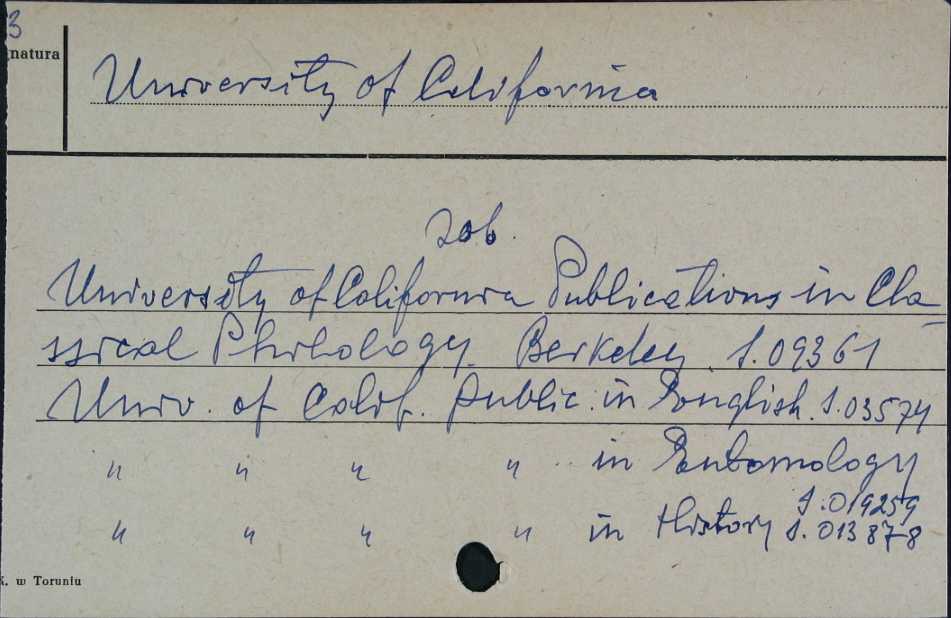 3
natura
University of California
zob.
University of California Publications in Cla-
ssical Philology. Berkeley S.09361
Univ. of Calif. Public. in English. S.03574
" " " " in Entomology
S.019259
" " " " in History S.013878
K. w Toruniu